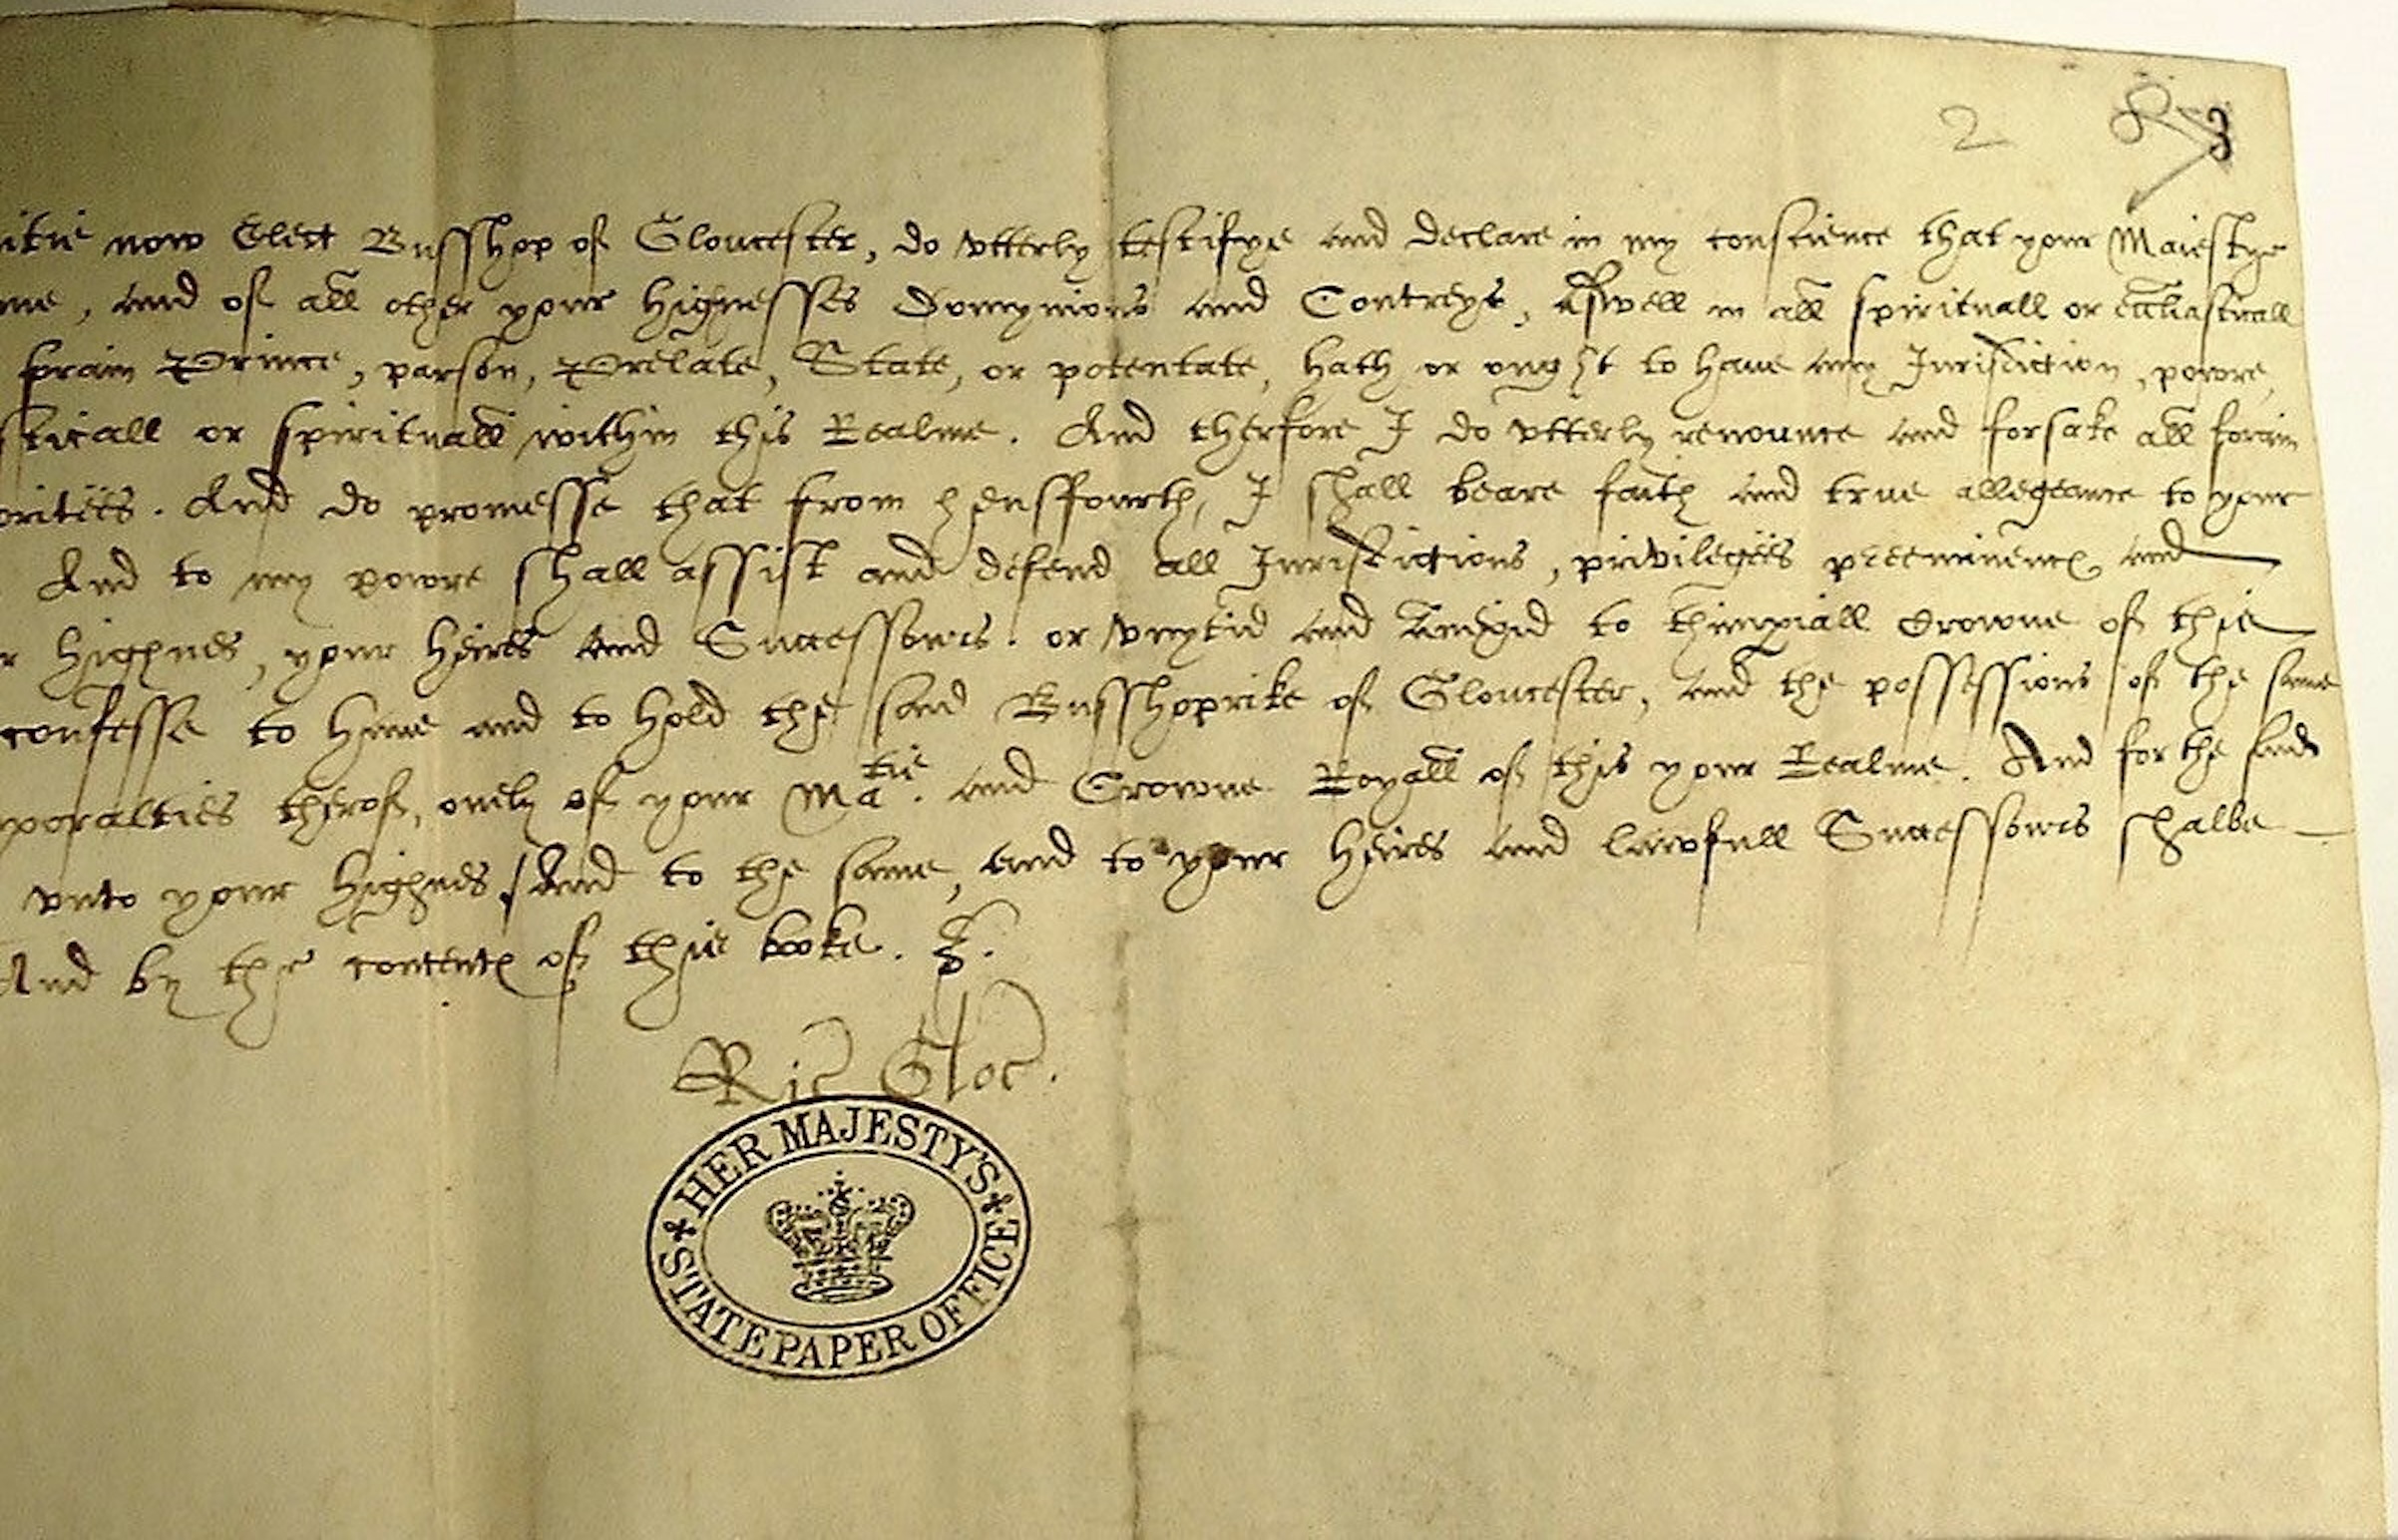 2 83
itie now Elect Busshop of Gloucester, do vtterly testifye and declare in my conscience that your Maiestye
me, and of all other your highnesses Domynions and Contreys, aswell in all spirituall or eccliasticall
forain Prince, parson, Prelate, State, or potentate, hath or ought to haue any Jurisdiction, powre,
sticall or spirituall within this Realme. And therfore I do vtterly renounce and forsake all forain
oritiës. And do promesse that from hensffourth, I shall beare faith and true allegeance to your
And to my powre shall assist and defend all Jurisdictions, privilegiës preeminencꝭ and
r highnes, your heires and Successours. or vnytid and annexid to thimpiall Crowne of this
confesse to haue and to hold the said Busshoprike of Gloucester, and the possessions of the same
poralties therof, onely of your Matie. and Crowne Royall of this your Realme. And for the said
vnto your highnes / And to the same, and to your heires and lawfull Successours shalbe
And by the contentꝭ of this boke. &.
Ric Gloc.
HER MAJESTY'S
STATE PAPER OFFICE